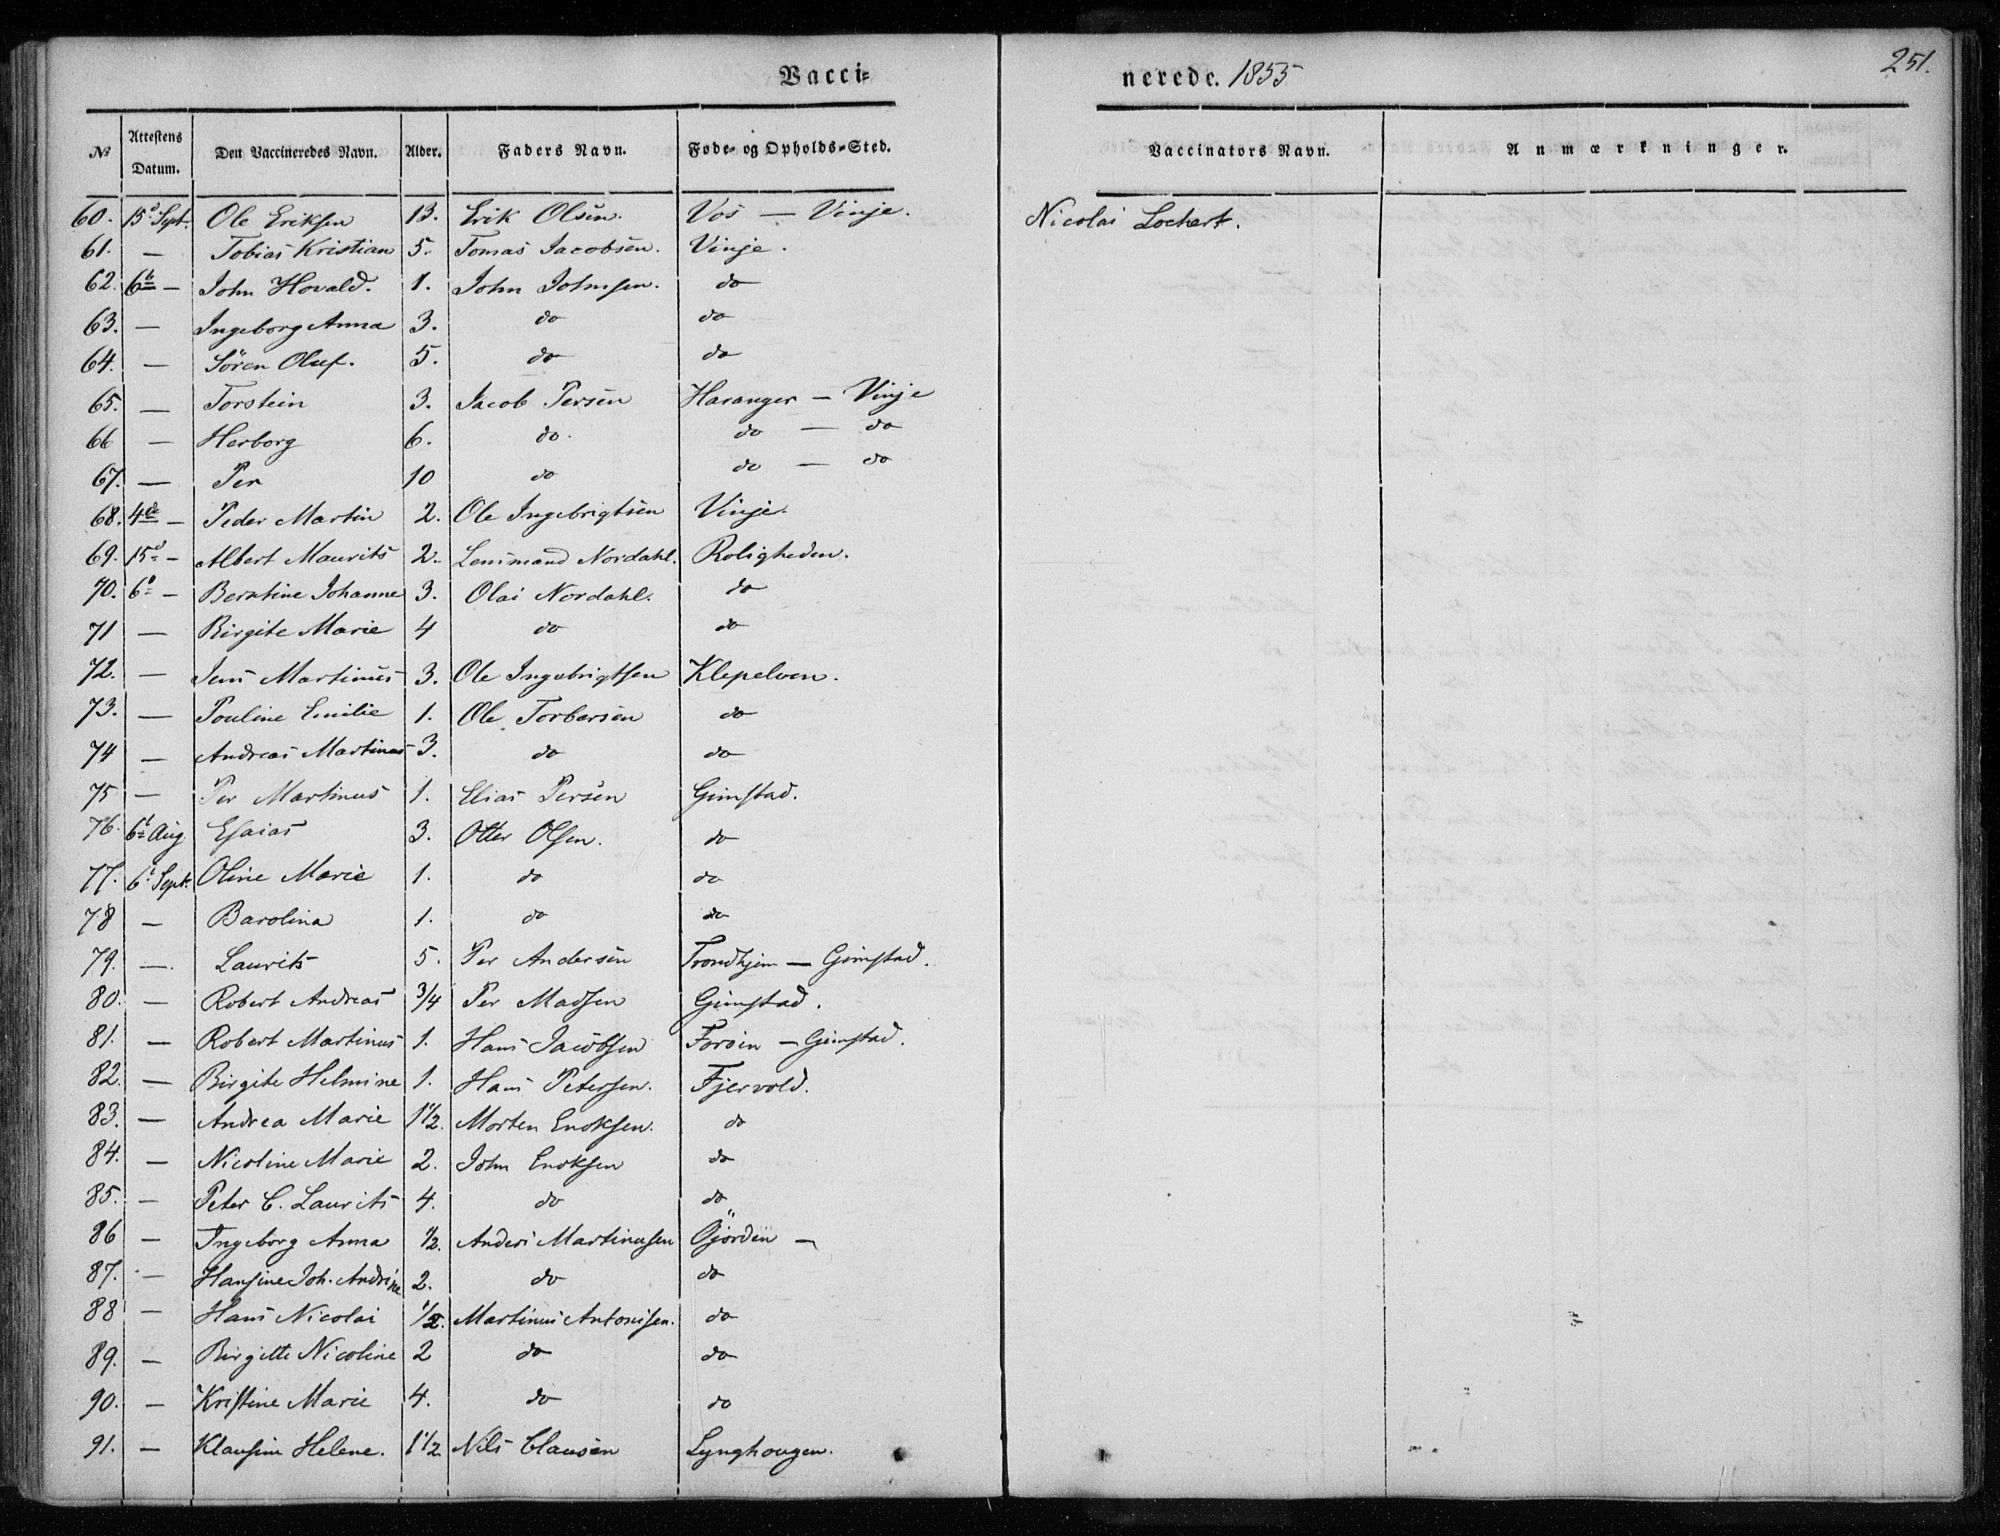 Vacci-
nerede. 1855
251.
№ Attestens Datum. Den Vaccineredes Navn. Alder. Faders Navn. Føde- og Opholds-Sted. Vaccinators Navn. Anmærkninger.
60. 15d Sept. Ole Eriksen 13. Erik Olsen. Vos — Vinje. Nicolai Lochert.
61. — Tobias Kristian 5. Tomas Jacobsen. Vinje.
62. 6t — John Hovald. 1. John Johnsen. do
63. — Ingeborg Anna 3. do do
64. — Sören Oluf. 5. do do
65. — Torstein 3. Jacob Persen Haranger — Vinje
66 — Herborg 6. do. do — do
67. — Per 10 do do — do
68. 4de — Peder Martin 2. Ole Ingebrigtsen Vinje.
69. 15d — Albert Maurits 2. Lensmand Nordahl. Roligheden.
70. 6 — Berntine Johanne 3. Olai Nordahl. do
71 — Birgite Marie 4 do do
72. — Jens Martinus 3. Ole Ingebrigtsen Klepelven.
73. — Pouline Emilie 1. Ole Torbersen do
74 — Andreas Martinus 3. do do
75 — Per Martinus 1. Elias Persen Gimstad.
76. 6t Aug Esaias 3. Otter Olsen. do
77. 6t Sept. Oline Marie 1. do do
78 — Barolina 1. do do
79. — Laurits 5. Per Andersen Trondhjem — Gimstad.
80. — Robert Andreas 3/4 Per Madsen Gimstad.
81. — Robert Martinus 1. Hans Jacobsen Foröin — Gimstad.
82. — Birgite Helmine 1. Hans Petersen. Fjervold.
83. — Andrea Marie 1 1/2. Morten Enoksen. do
84. — Nicoline Marie 2. John Enoksen do
85. — Peter C. Laurits 4. do do
86 — Ingeborg Anna 1/2. Anders Martinusen Gjörden —
87. — Hansine Joh. Andrine 2. do do
88 — Hans Nicolai 1/2. Martinus Antonisen. do
89. — Birgitte Nicoline 2 do do
90. — Kristine Marie 4. do do
91. — Klausine Helene. 1 1/2 Nils Clausen Lynghougen.